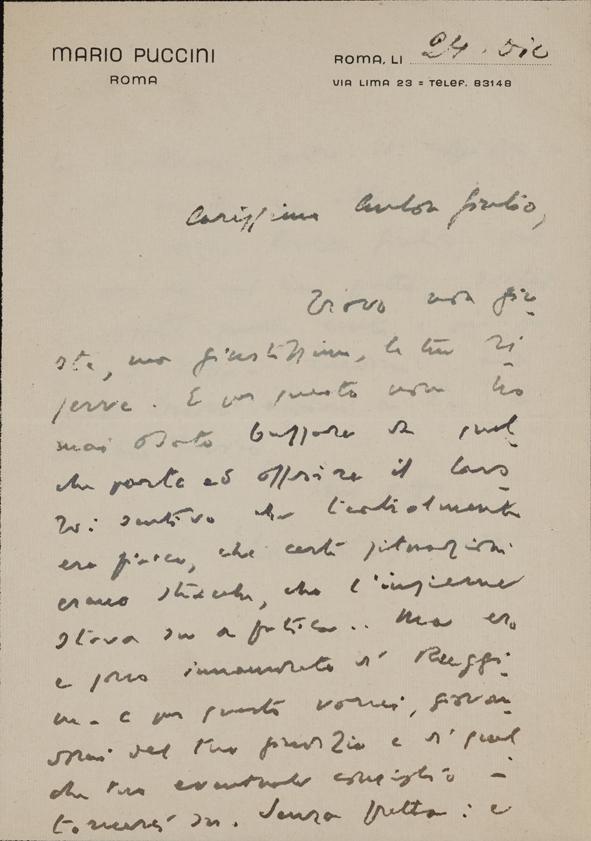 MARIO PUCCINI
ROMA
ROMA, LI 24. Dic
VIA LIMA 23 = TELEF. 83148
Carissimo Anton Giulio,
Trovo non giu-
ste, ma giustissime, le tue ri-
serve. E per questo non ho
mai osato bussare a qual-
che porta ed offrire il lavo-
ro: sentivo che teatralmente
era fiacco, che certe situazioni
erano staccate, che l'insieme
stava su a fatica.. Ma ero
e sono innamorato di Ruggi-
e per questo vorrei, giovan-
domi del tuo giudizio e di qual-
che tuo eventuale consiglio -
tornarci su. Senza fretta: e